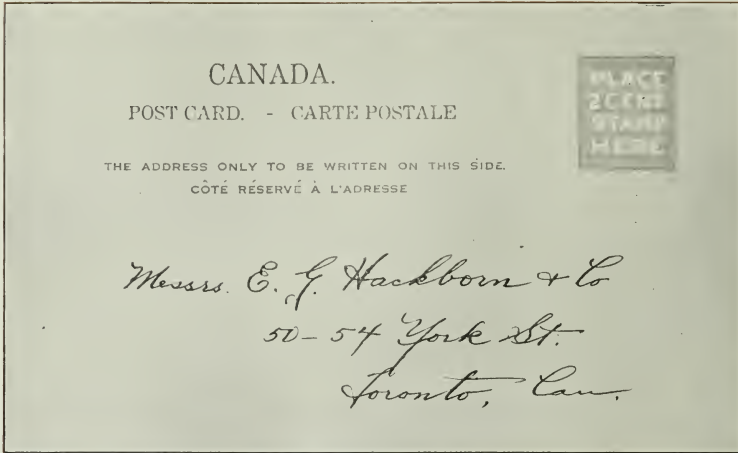 CANADA.
POST CARD. - CARTE POSTALE
THE ADDRESS ONLY TO BE WRITTEN ON THIS SIDE.
CÔTÉ RÉSERVÉ À L'ADRESSE
PLACE
2 CENT
STAMP
HERE
Messrs. E. G. Hackborn & Co
50-54 York St.
Toronto, Can.